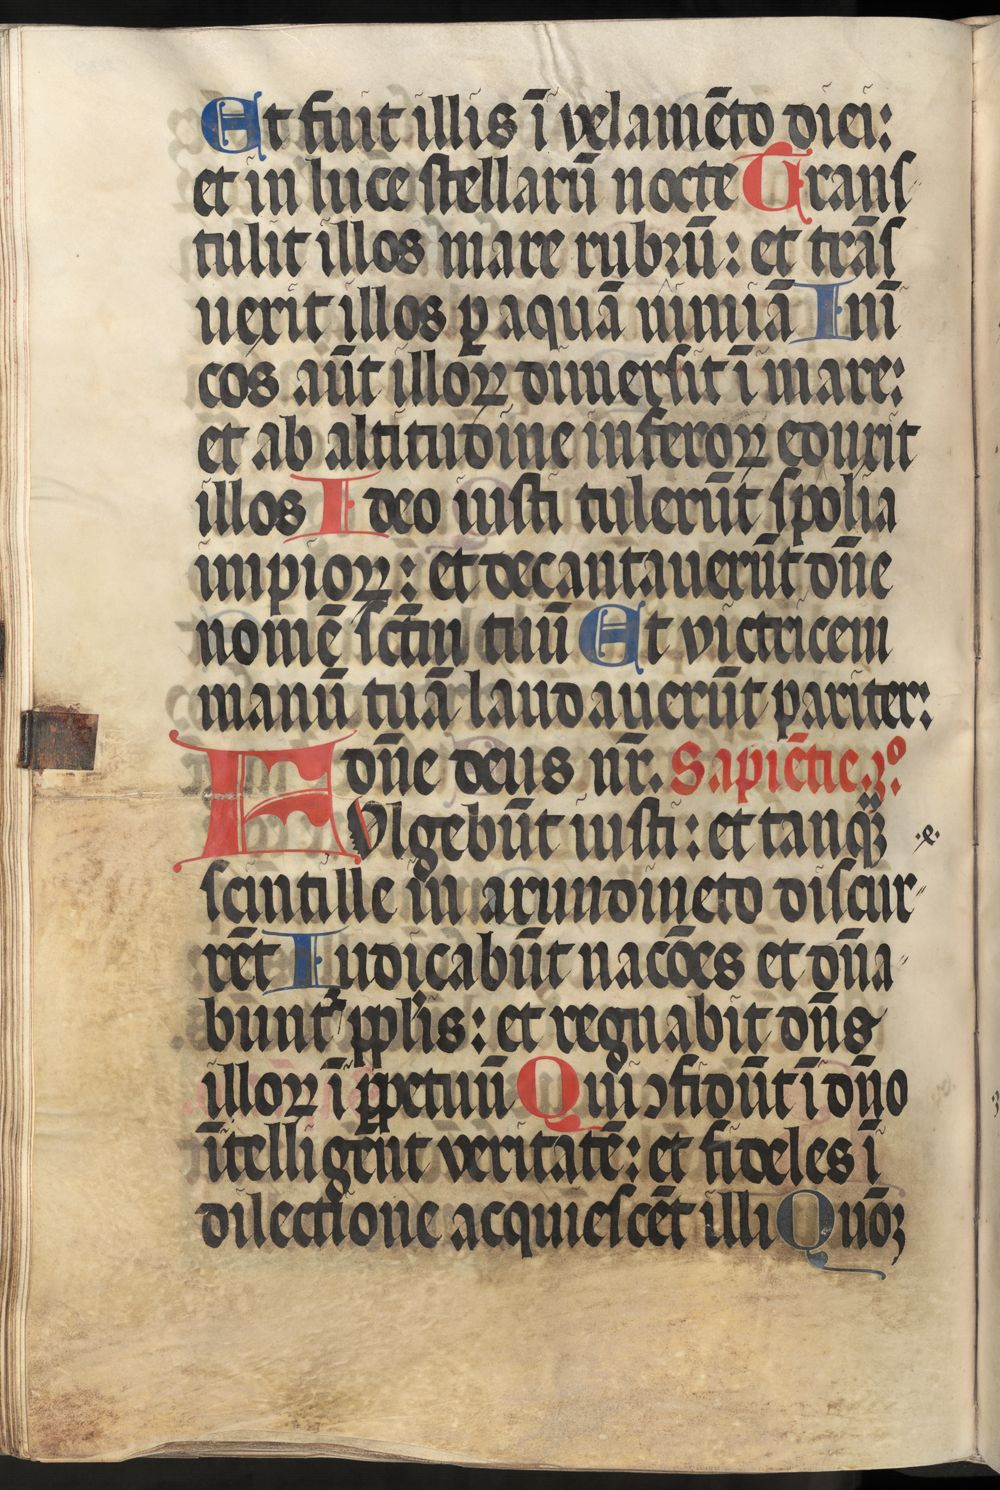 Et fuit illis ī velamēto diei:
et in lucē stellarū nocte Trans
tulit illos mare rubrū: et trās
uexit illos ꝑ aquā nimiā Inī
cos aūt illoꝝ dimersit ī mare:
et ab altitudine inferoꝝ eduxit
illos Ideo iusti tulerūt spolia
impioꝝ: et decantauerūt dn̄e
nomē sc̄tm tuū Et victricem
manū tuā laudauerūt pariter:
dn̄e deus nr̄. Sapiētie.3º.
FVlgebūt iusti: et tanqꝫ .e.
scintille in arundineto discur
rēt Iudicabūt nacōes et dn̄a
bunt᷑ ppl̄is: et regnabit dn̄s
illoꝝ ī ꝑpetuū Qui ↄfidūt ī dn̄o
ītelligēt veritatē: et fideles ī
dilectione acquiescēt illi Quōꝫ